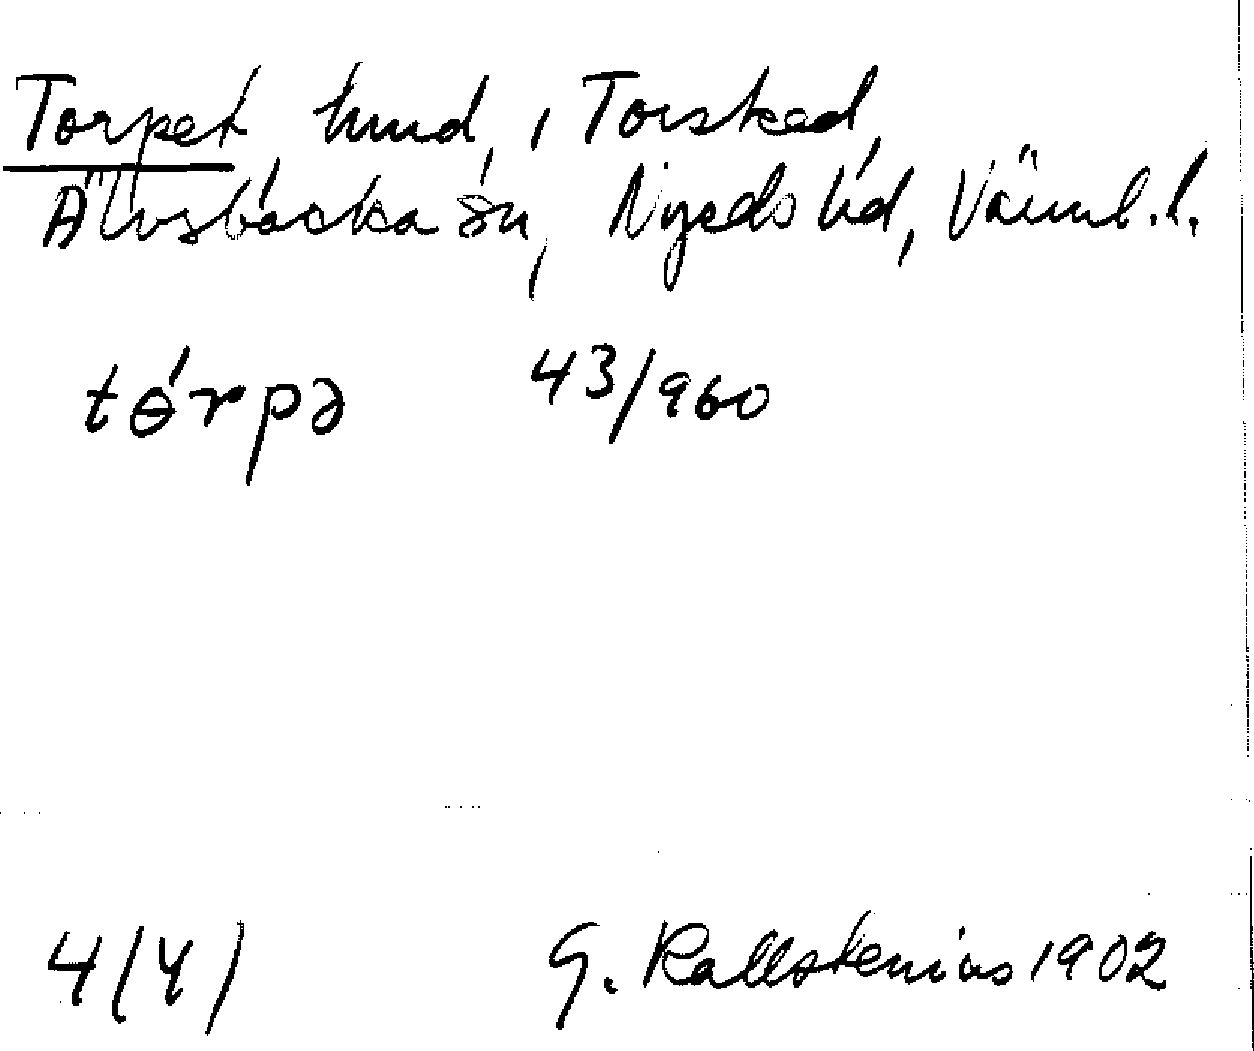 Torpet hmd, i Torsked,
Älvsbacka sn, Nyeds hd, Värml. l.
tɵ́rpə 43/960
4 (4) G. Kallstenius 1902